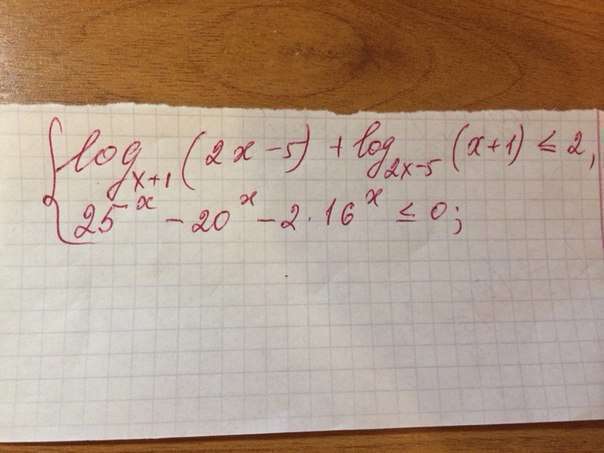 log_{x+1} (2x-5) + log_{2x-5} (x+1) ≤ 2,
25^x - 20^x - 2·16^x ≤ 0;